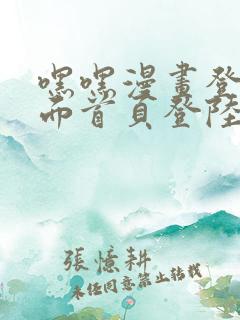 嘿嘿漫畫登
而首頁登陸
張憶耕
未經同意禁止轉載